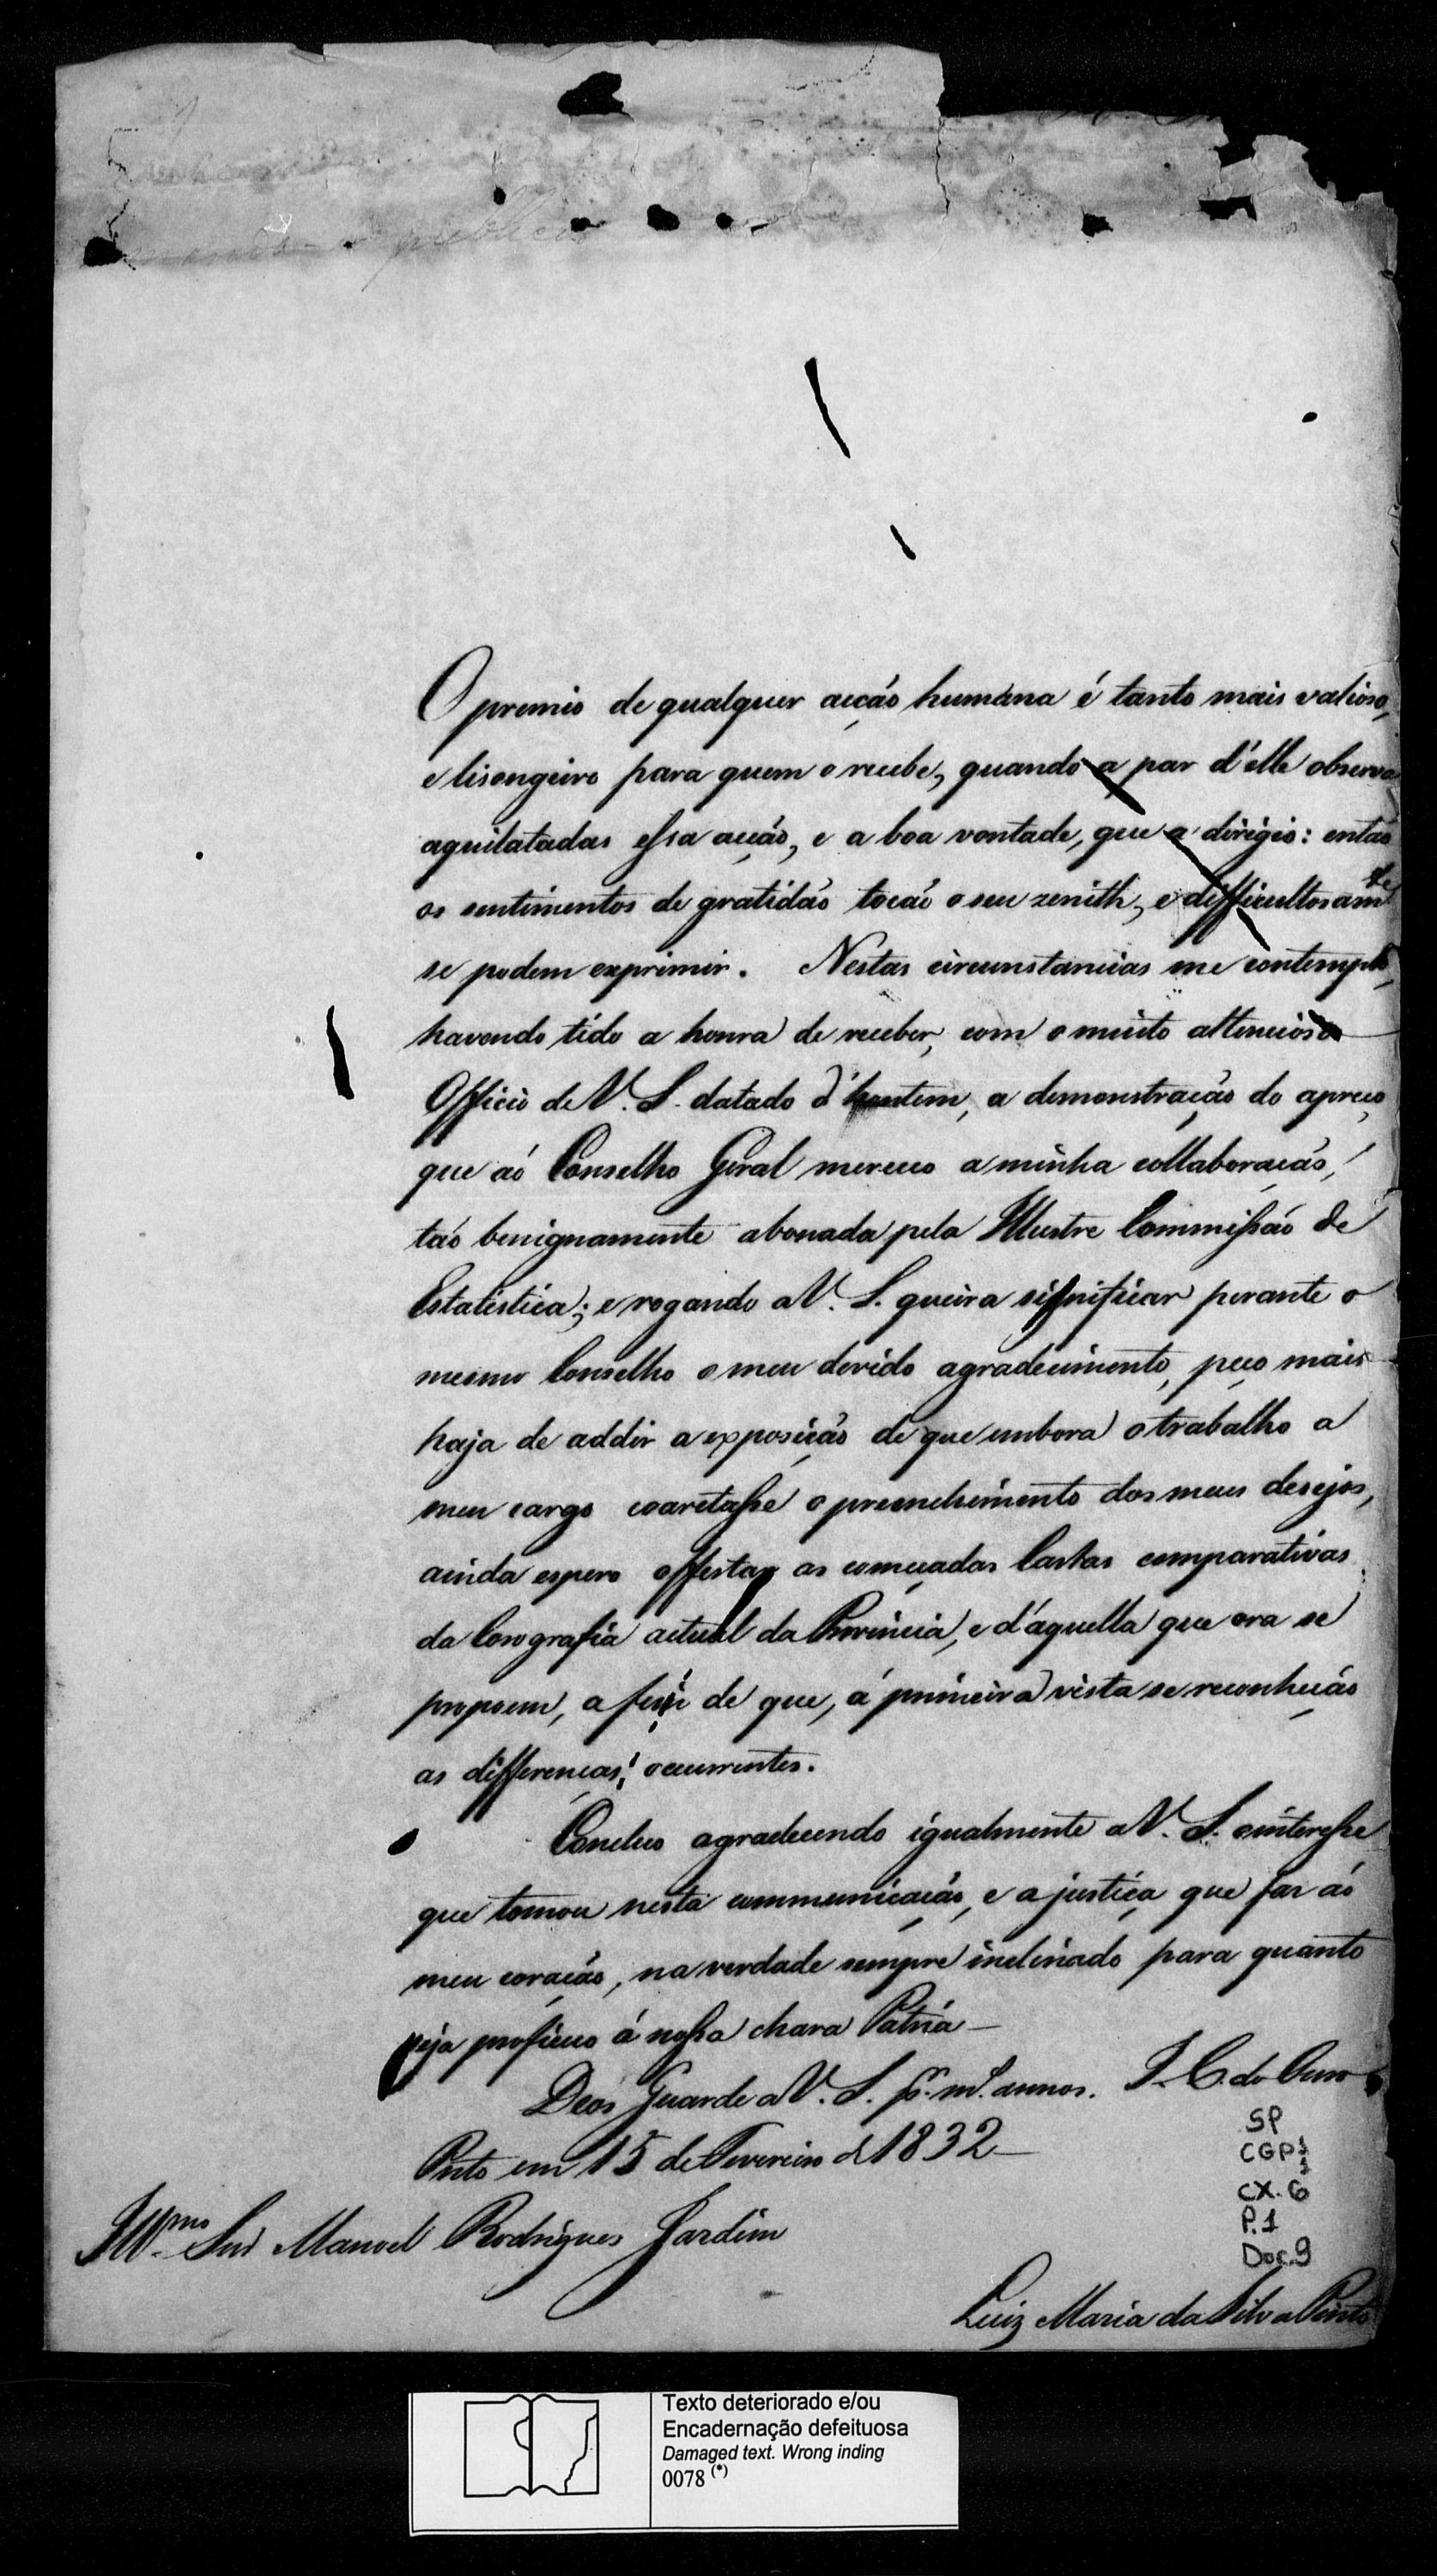 publica
O premio de qualquer acção humana é tanto mais valioso,
e lisongeiro para quem o recebe, quando a par d'elle observa
aquilatadas essa acção, e a boa vontade, que a dirigio: então
os sentimentos de gratidão tocão o seu zenith, e difficultosamte
se podem exprimir. Nestas circunstancias me contemplo,
havendo tido a honra de receber, com o muito attencioso
Officio de V. S. datado d'hontem, a demonstração do apreço
que áo Conselho Geral mereceo a minha collaboração,
tão benignamente abonada pela Illustre Commissão de
Estatistica; e rogando a V. S. queira significar perante o
mesmo Conselho o meu devido agradecimento, peço mais
haja de addir a exposição de que embora o trabalho a
meu cargo coarctasse o preenchimento dos meus desejos,
ainda espero offertar as começadas Cartas comparativas
da Corografia actual da Provincia, e d'aquella que ora se
propoem, a fim de que, á primeira vista se reconheção
as differenças, occurrentes.
Concluo agradecendo igualmente a V. S. o interesse
que tomou nesta communicação, e a justiça que faz áo
meu coração, na verdade sempre inclinado para quanto
seja proficuo á nossa chara Patria —
Deos Guarde a V. S. por ms. annos. I. C. do Ouro
Preto em 15 de Fevereiro de 1832 —
Illmo. Snr Manoel Rodrigues Jardim
Luiz Maria da Silva Pinto
SP
CGP1
CX. 6
P.1
Doc.9
Texto deteriorado e/ou
Encadernação defeituosa
Damaged text. Wrong inding
0078 (*)